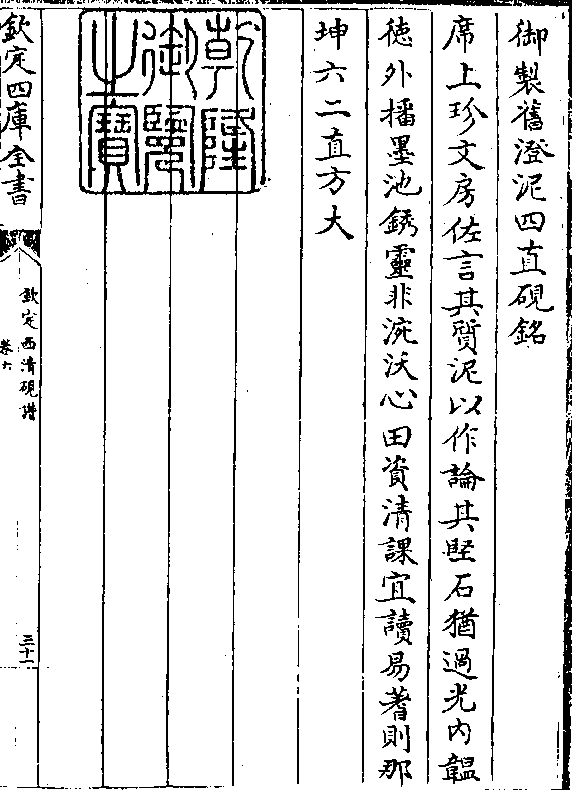 御製舊澄泥四直硯銘
席上珍文房佐言其質泥以作論其堅石猶過光内韞
徳外播墨池銹靈非涴沃心田資清課宜讀易著則那
坤六二直方大
乾隆御覽之寶
欽定四庫全書
欽定西清硯譜
卷六
三十一